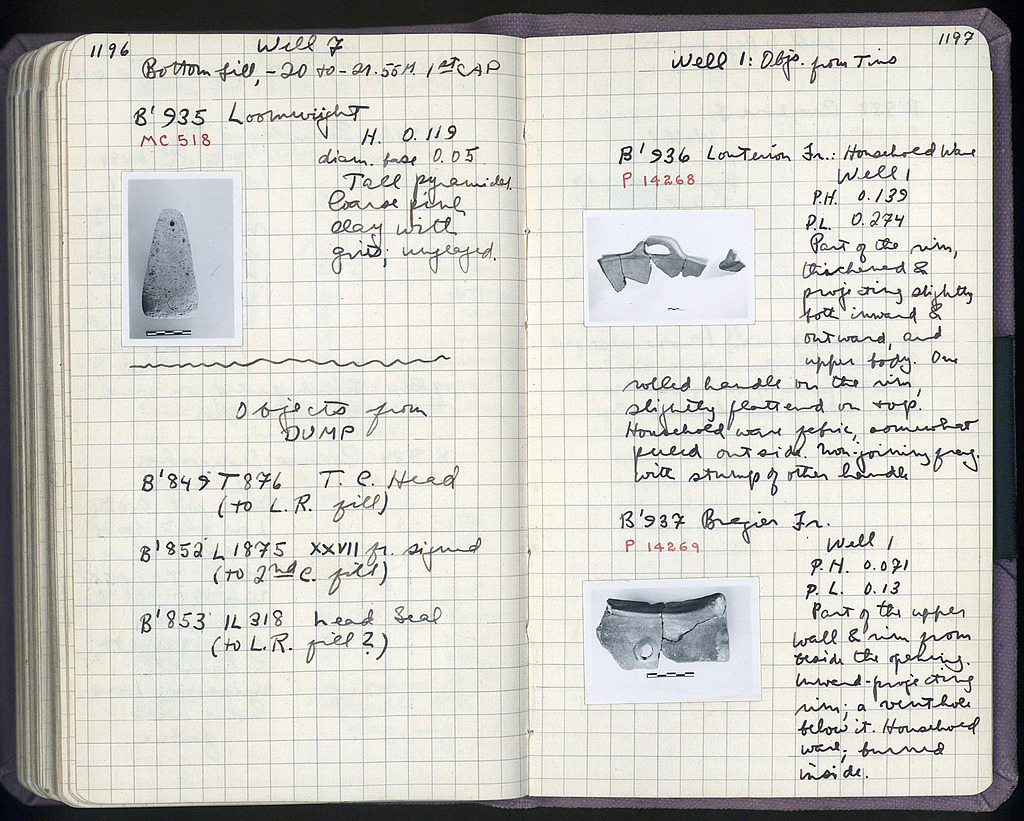 1196
Well 7
Bottom fill, -20 to -21.55M. 1st C AP
B'935 Loomweight
MC 518
H. 0.119
diam. base 0.05
Tall pyramidal.
Coarse pink
clay with
grits; unglazed.
Objects from
DUMP
B'849 T 876 T.C. Head
(to L.R. fill)
B'852 L 1875 XXVII fr. signed
(to 2nd c. fill)
B'853 IL 318 Lead Seal
(to L.R. fill?)
1197
Well 1: Objs. from Tins
B'936 Louterion Fr.: Household Ware
P 14268
Well 1
P.H. 0.139
P.L. 0.274
Part of the rim,
thickened &
projecting slightly
both inward &
outward, and
upper body. One
rolled handle on the rim,
slightly flattened on top.
Household ware fabric, somewhat
peeled outside. Non-joining frag.
with stump of other handle
B'937 Brazier Fr.
P 14269
Well 1
P.H. 0.071
P.L. 0.13
Part of the upper
wall & rim from
beside the opening.
Inward-projecting
rim; a vent hole
below it. Household
ware; burned
inside.